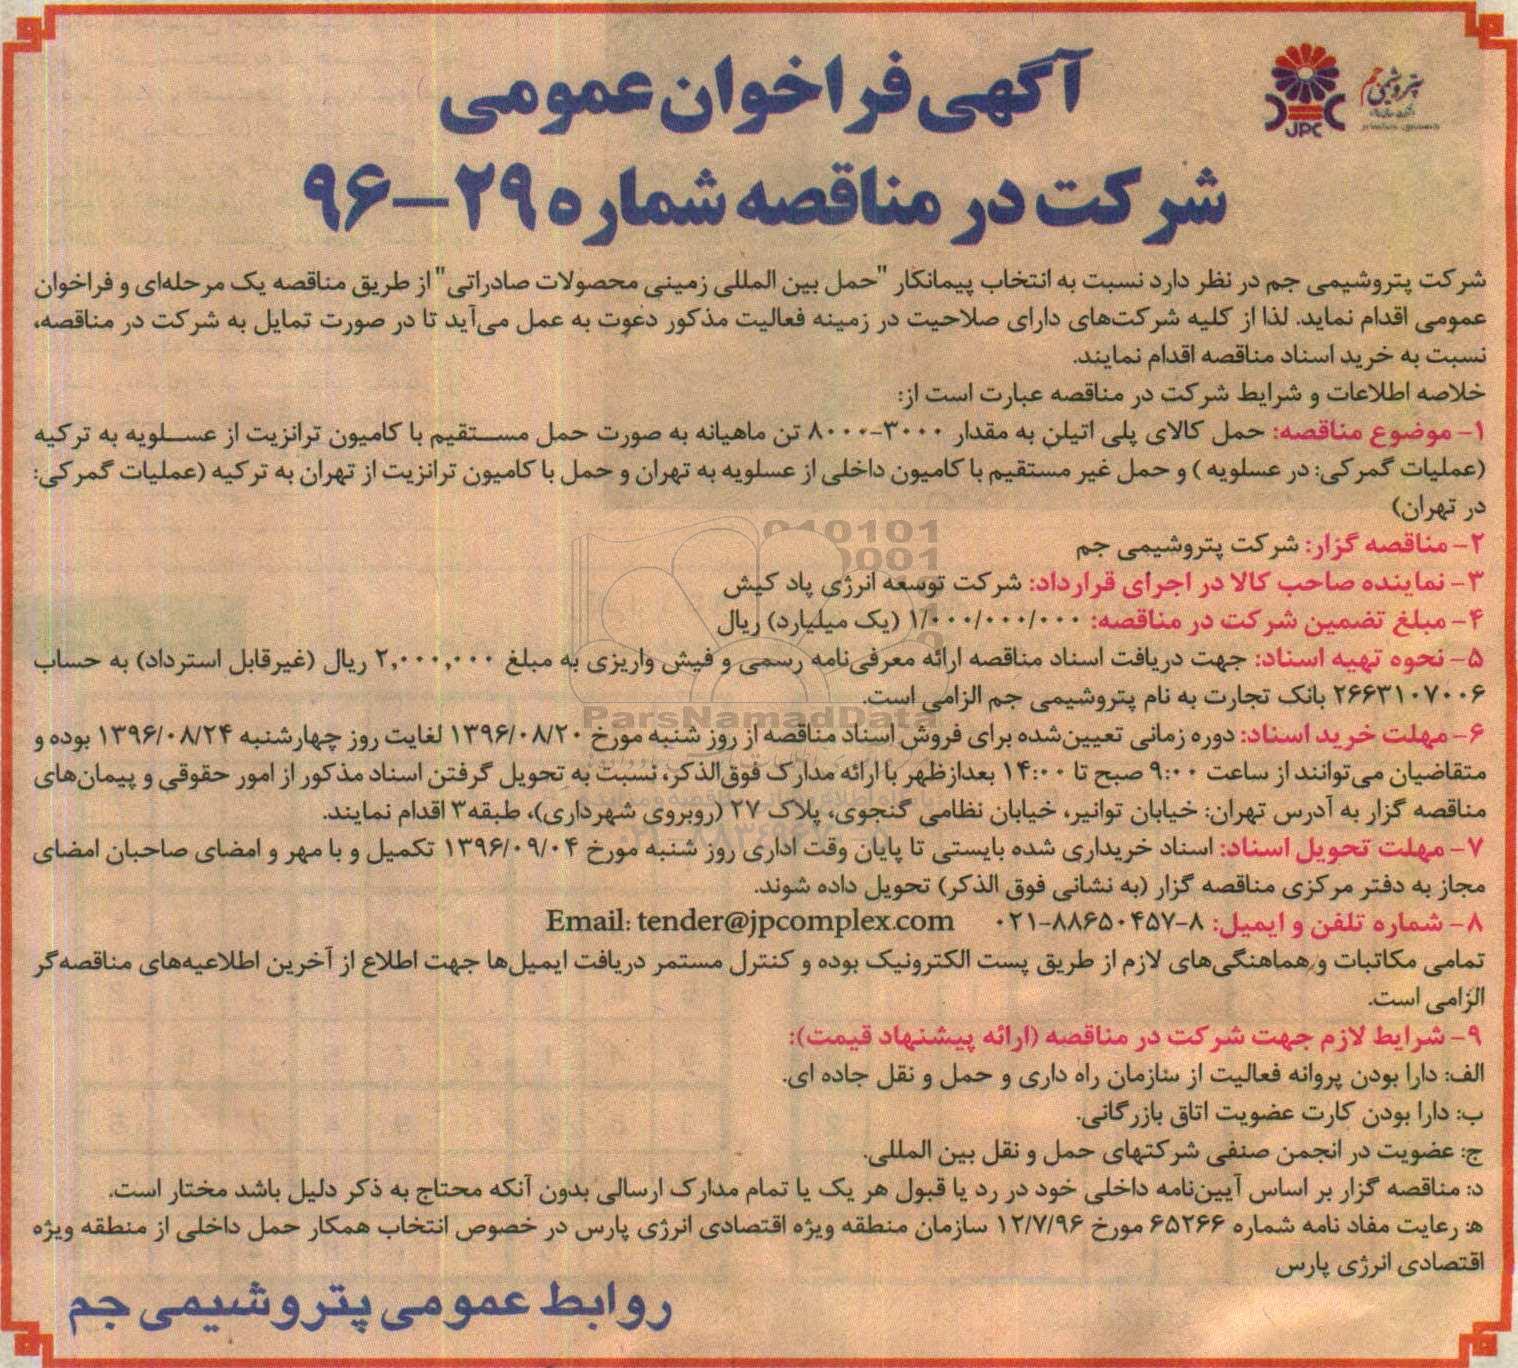 پتروشیمی جم
JPC
آگهی فراخوان عمومی
شرکت در مناقصه شماره ۲۹-۹۶
شرکت پتروشیمی جم در نظر دارد نسبت به انتخاب پیمانکار "حمل بین المللی زمینی محصولات صادراتی" از طریق مناقصه یک مرحله‌ای و فراخوان
عمومی اقدام نماید. لذا از کلیه شرکت‌های دارای صلاحیت در زمینه فعالیت مذکور دعوت به عمل می‌آید تا در صورت تمایل به شرکت در مناقصه،
نسبت به خرید اسناد مناقصه اقدام نمایند.
خلاصه اطلاعات و شرایط شرکت در مناقصه عبارت است از:
۱- موضوع مناقصه: حمل کالای پلی اتیلن به مقدار ۳۰۰۰-۸۰۰۰ تن ماهیانه به صورت حمل مستقیم با کامیون ترانزیت از عسلویه به ترکیه
(عملیات گمرکی: در عسلویه ) و حمل غیر مستقیم با کامیون داخلی از عسلویه به تهران و حمل با کامیون ترانزیت از تهران به ترکیه (عملیات گمرکی:
در تهران)
۲- مناقصه گزار: شرکت پتروشیمی جم
۳- نماینده صاحب کالا در اجرای قرارداد: شرکت توسعه انرژی پاد کیش
۴- مبلغ تضمین شرکت در مناقصه: ۱/۰۰۰/۰۰۰/۰۰۰ (یک میلیارد) ریال
۵- نحوه تهیه اسناد: جهت دریافت اسناد مناقصه ارائه معرفی‌نامه رسمی و فیش واریزی به مبلغ ۲,۰۰۰,۰۰۰ ریال (غیرقابل استرداد) به حساب
۲۶۶۳۱۰۷۰۰۶ بانک تجارت به نام پتروشیمی جم الزامی است.
۶- مهلت خرید اسناد: دوره زمانی تعیین‌شده برای فروش اسناد مناقصه از روز شنبه مورخ ۱۳۹۶/۰۸/۲۰ لغایت روز چهارشنبه ۱۳۹۶/۰۸/۲۴ بوده و
متقاضیان می‌توانند از ساعت ۹:۰۰ صبح تا ۱۴:۰۰ بعدازظهر با ارائه مدارک فوق‌الذکر، نسبت به تحویل گرفتن اسناد مذکور از امور حقوقی و پیمان‌های
مناقصه گزار به آدرس تهران: خیابان توانیر، خیابان نظامی گنجوی، پلاک ۲۷ (روبروی شهرداری)، طبقه۳ اقدام نمایند.
۷- مهلت تحویل اسناد: اسناد خریداری شده بایستی تا پایان وقت اداری روز شنبه مورخ ۱۳۹۶/۰۹/۰۴ تکمیل و با مهر و امضای صاحبان امضای
مجاز به دفتر مرکزی مناقصه گزار (به نشانی فوق الذکر) تحویل داده شوند.
۸- شماره تلفن و ایمیل: ۸-۸۸۶۵۰۴۵۷-۰۲۱ Email: tender@jpcomplex.com
تمامی مکاتبات و هماهنگی‌های لازم از طریق پست الکترونیک بوده و کنترل مستمر دریافت ایمیل‌ها جهت اطلاع از آخرین اطلاعیه‌های مناقصه‌گر
الزامی است.
۹- شرایط لازم جهت شرکت در مناقصه (ارائه پیشنهاد قیمت):
الف: دارا بودن پروانه فعالیت از سازمان راه داری و حمل و نقل جاده ای.
ب: دارا بودن کارت عضویت اتاق بازرگانی.
ج: عضویت در انجمن صنفی شرکتهای حمل و نقل بین المللی.
د: مناقصه گزار بر اساس آیین‌نامه داخلی خود در رد یا قبول هر یک یا تمام مدارک ارسالی بدون آنکه محتاج به ذکر دلیل باشد مختار است.
ه: رعایت مفاد نامه شماره ۶۵۲۶۶ مورخ ۱۲/۷/۹۶ سازمان منطقه ویژه اقتصادی انرژی پارس در خصوص انتخاب همکار حمل داخلی از منطقه ویژه
اقتصادی انرژی پارس
روابط عمومی پتروشیمی جم
ParsNamadData